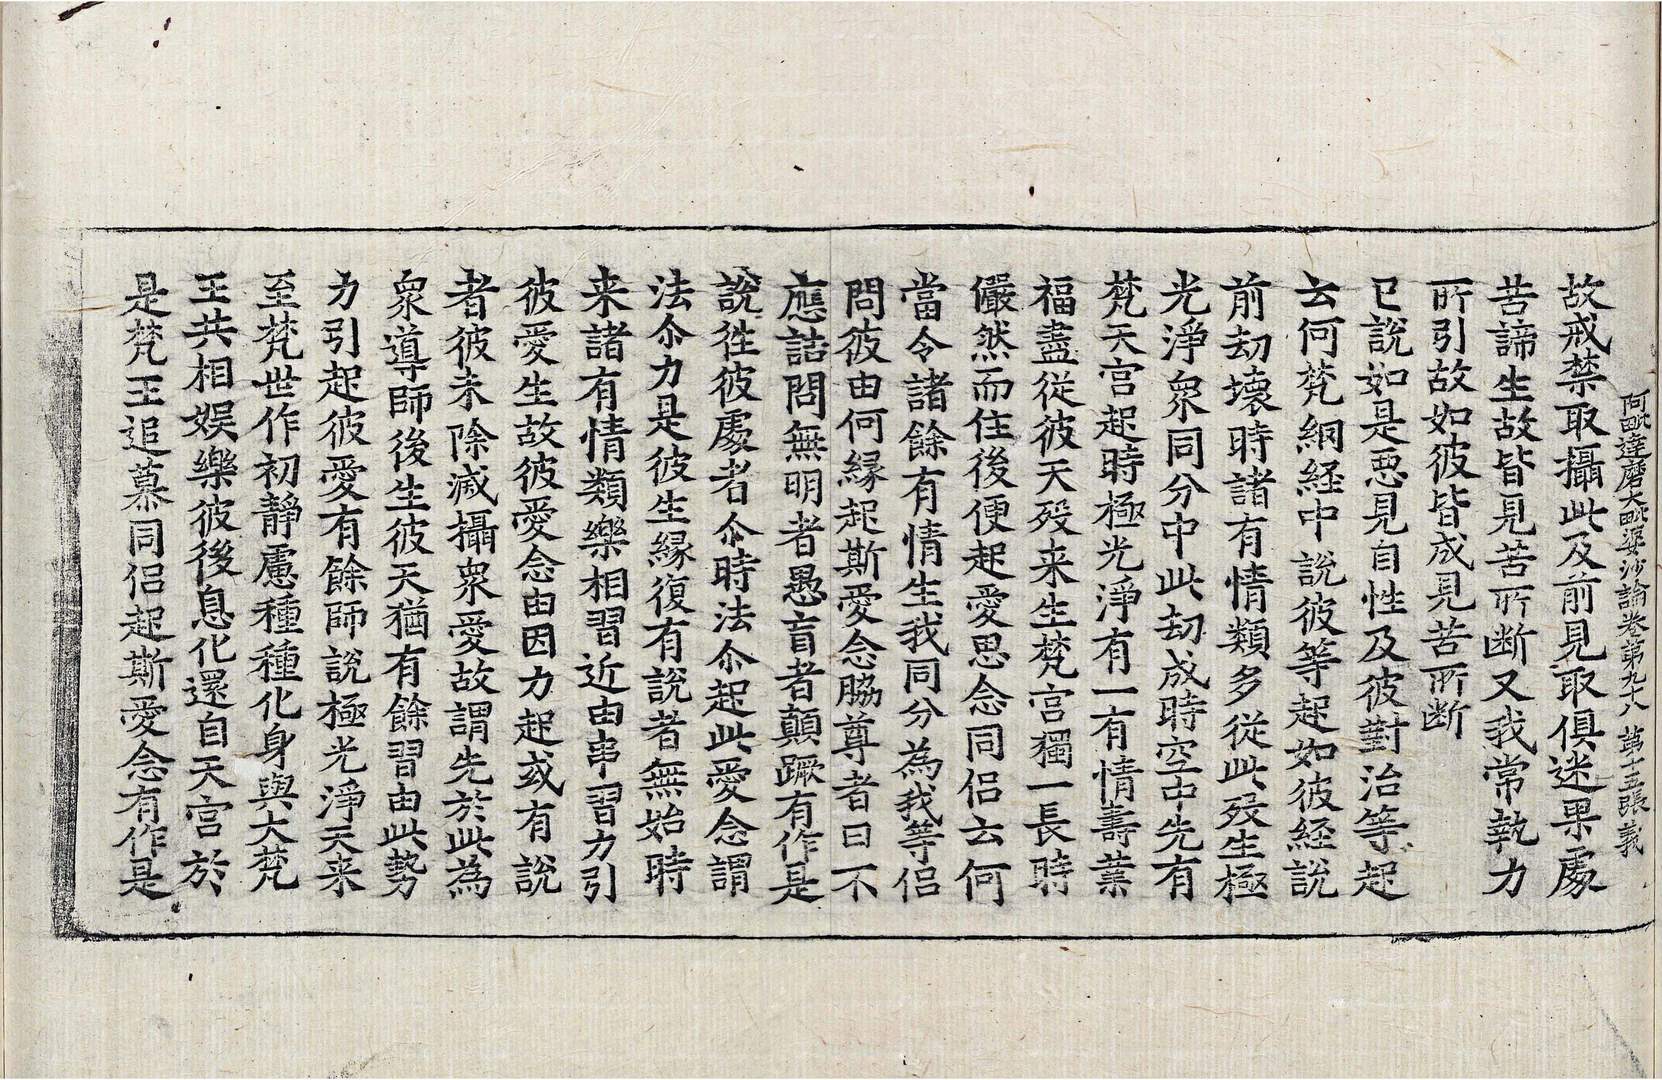 阿毗達磨大毗婆沙論卷第九十八 第十五張 義
故戒禁取攝此及前見取俱迷果處
苦諦生故皆見苦所断又我常執力
所引故如彼皆成見苦所断
已說如是惡見自性及彼對治等起
云何梵網経中說彼等起如彼経說
前劫壊時諸有情類多從此殁生極
光淨衆同分中此劫成時空中先有
梵天宮起時極光淨有一有情壽業
福盡從彼天殁来生梵宮獨一長時
儼然而住後便起愛思念同侣云何
當令諸餘有情生我同分為我等侣
問彼由何縁起斯愛念脇尊者曰不
應詰問無明者愚盲者顛蹶有作是
說徃彼處者尒時法尒起此愛念謂
法尒力是彼生縁復有說者無始時
来諸有情類樂相習近由串習力引
彼愛生故彼愛念由因力起或有說
者彼未除减攝衆愛故謂先於此為
衆導師後生彼天猶有餘習由此勢
力引起彼愛有餘師說極光淨天来
至梵世作初靜慮種種化身與大梵
王共相娱樂彼後息化還自天宮於
是梵王追慕同侣起斯愛念有作是